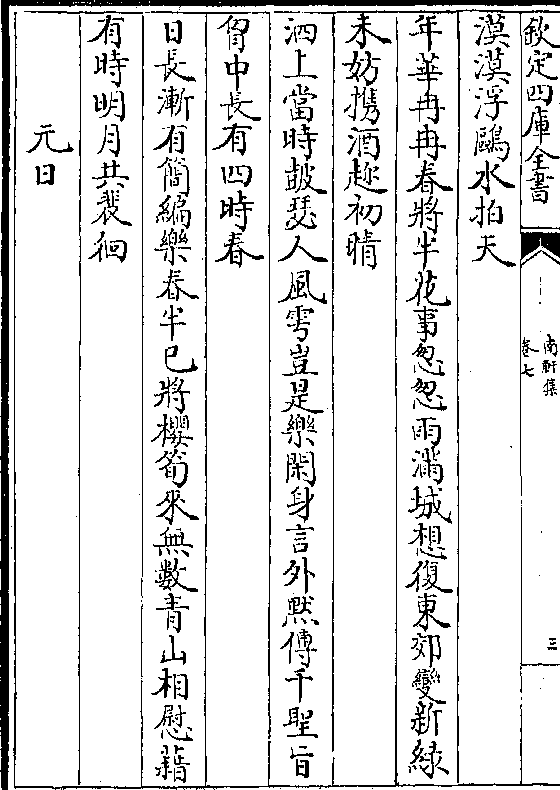 欽定四庫全書
南軒集
卷七
三
漠漠浮鷗水拍天
年華冉冉春將半花事怱怱雨滿城想復東郊變新綠
未妨携酒趂初晴
泗上當時皷瑟人風雩豈是樂閑身言外黙傳千聖旨
胷中長有四時春
日長漸有簡編樂春半已將櫻筍來無數青山相慰藉
有時明月共裴徊
元日